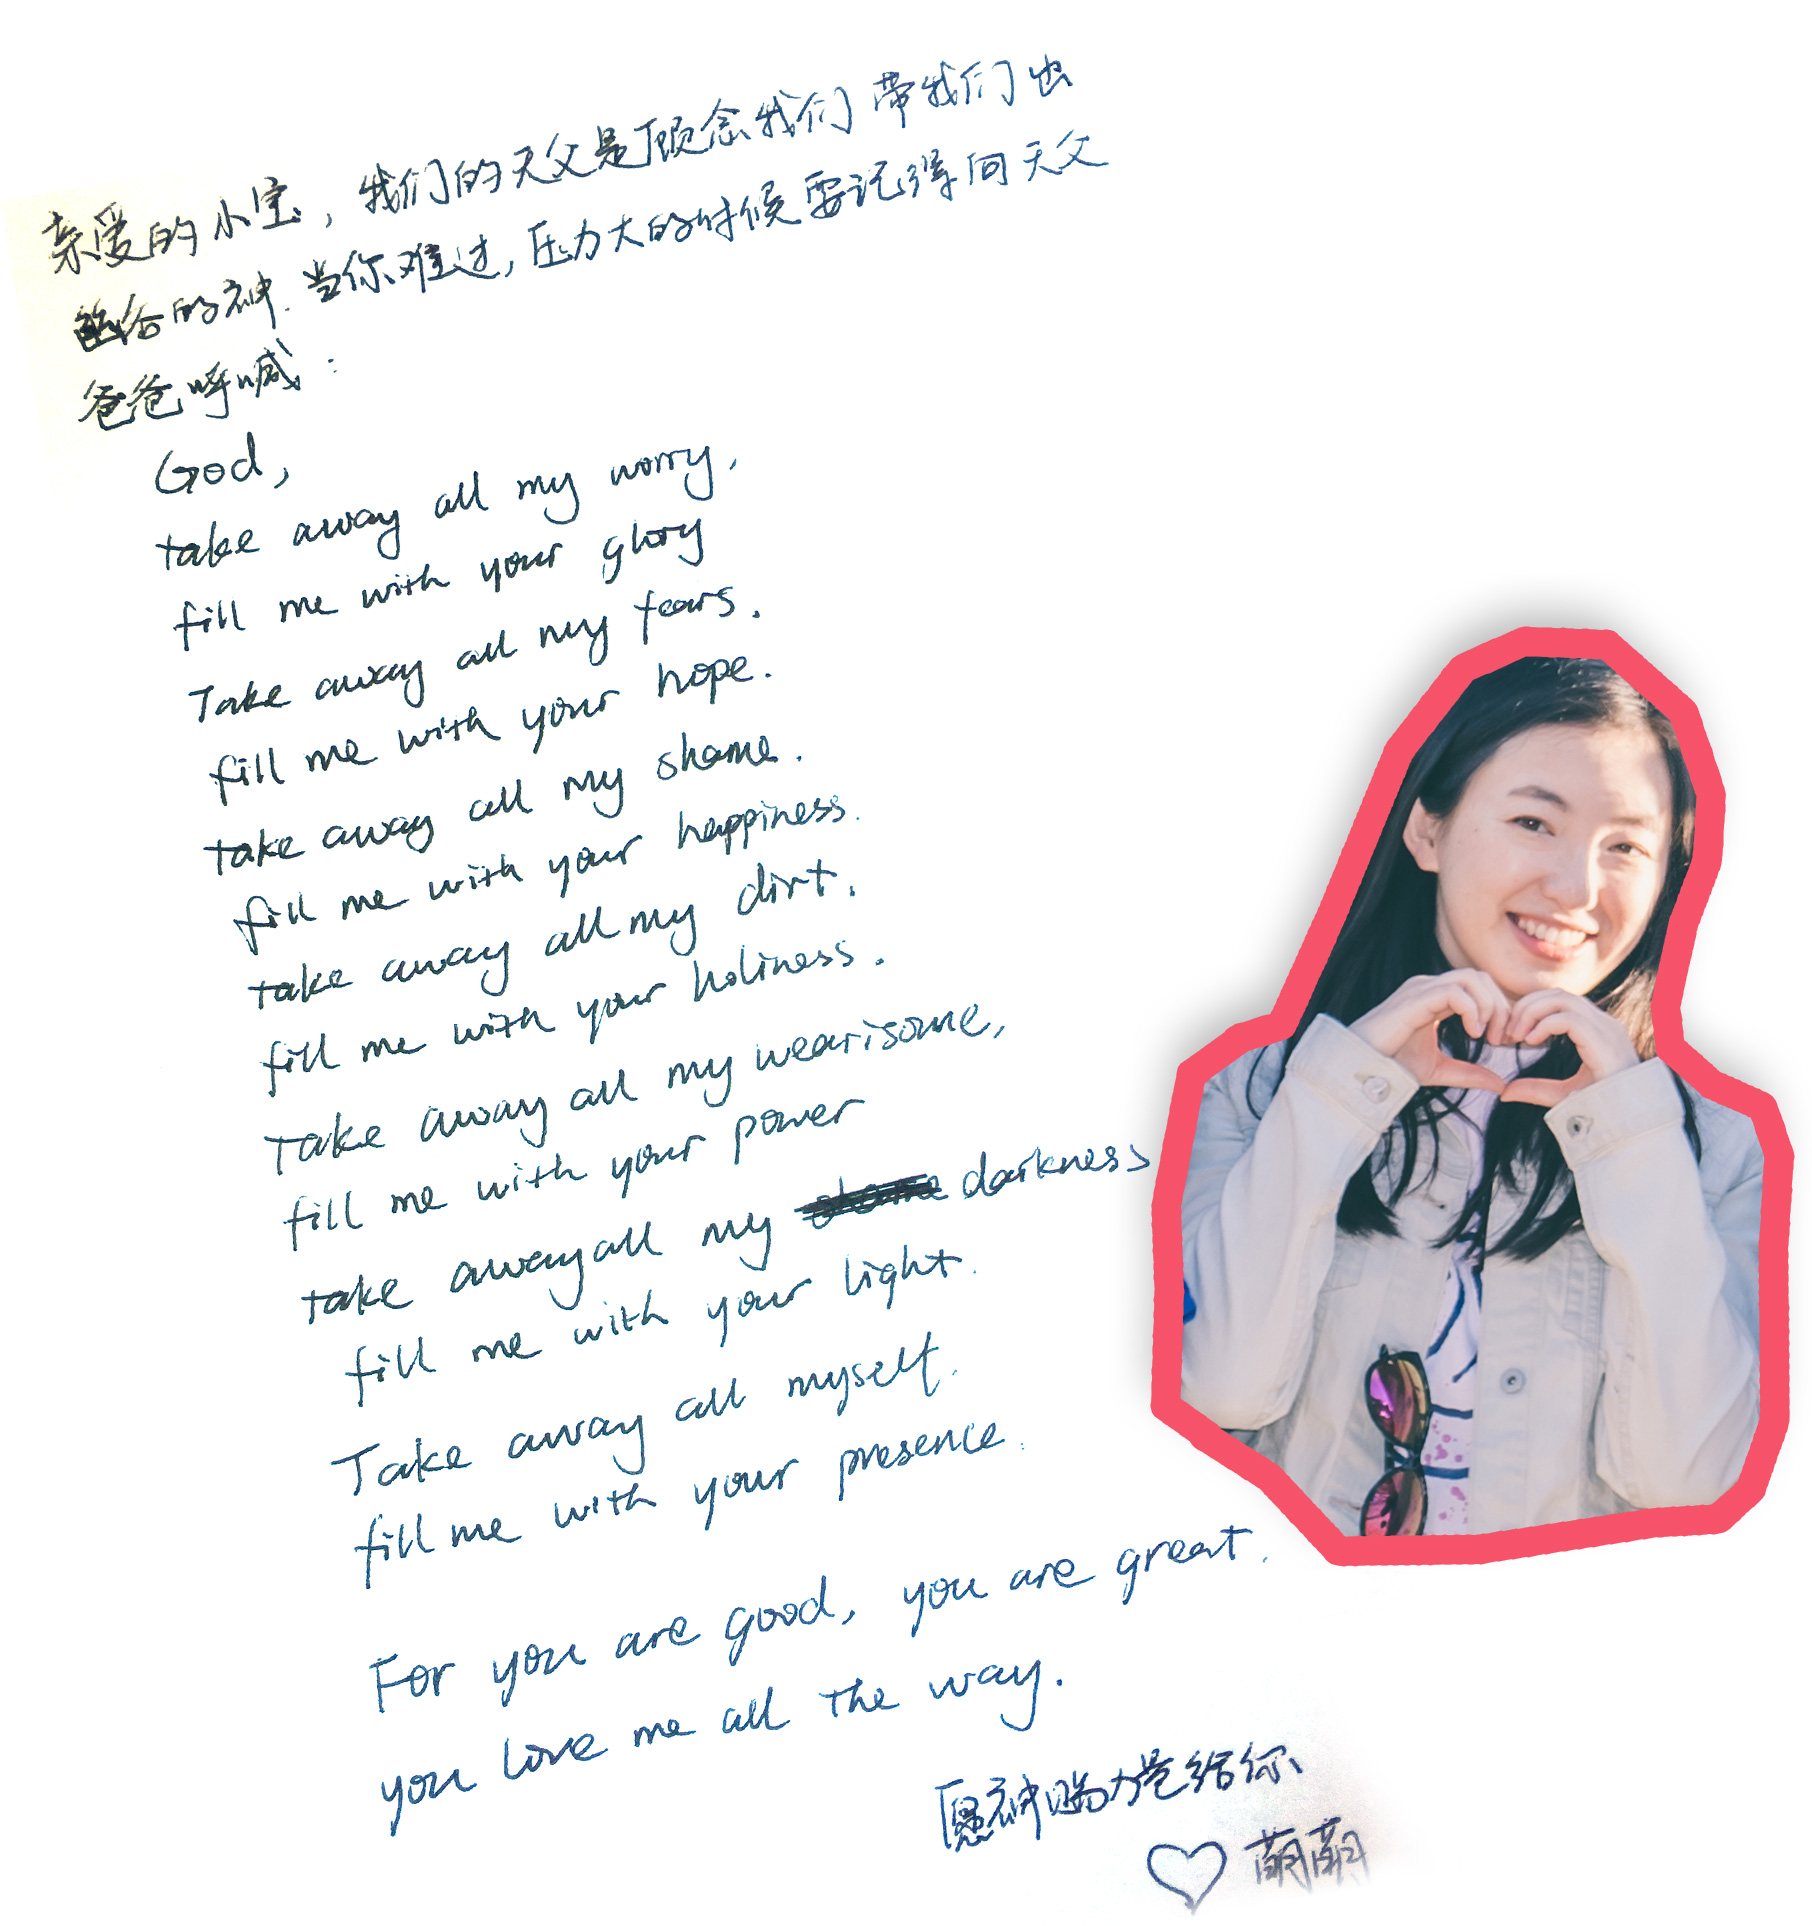 亲爱的小宝，我们的天父是顾念我们带我们出
的神.当你难过,压力大的时候要记得向天父
爸爸呼喊：
God,
take away all my worry,
fill me with your glory
Take away all my fears.
fill me with your hope.
take away all my shame.
fill me with your happiness.
take away all my dirt.
fill me with your holiness.
Take away all my wearisome,
fill me with your power
take away all my darkness
fill me with your light.
Take away all myself.
fill me with your presence.
For you are good, you are great.
you love me all the way.
愿神赐力量给你、
♡ 萌萌